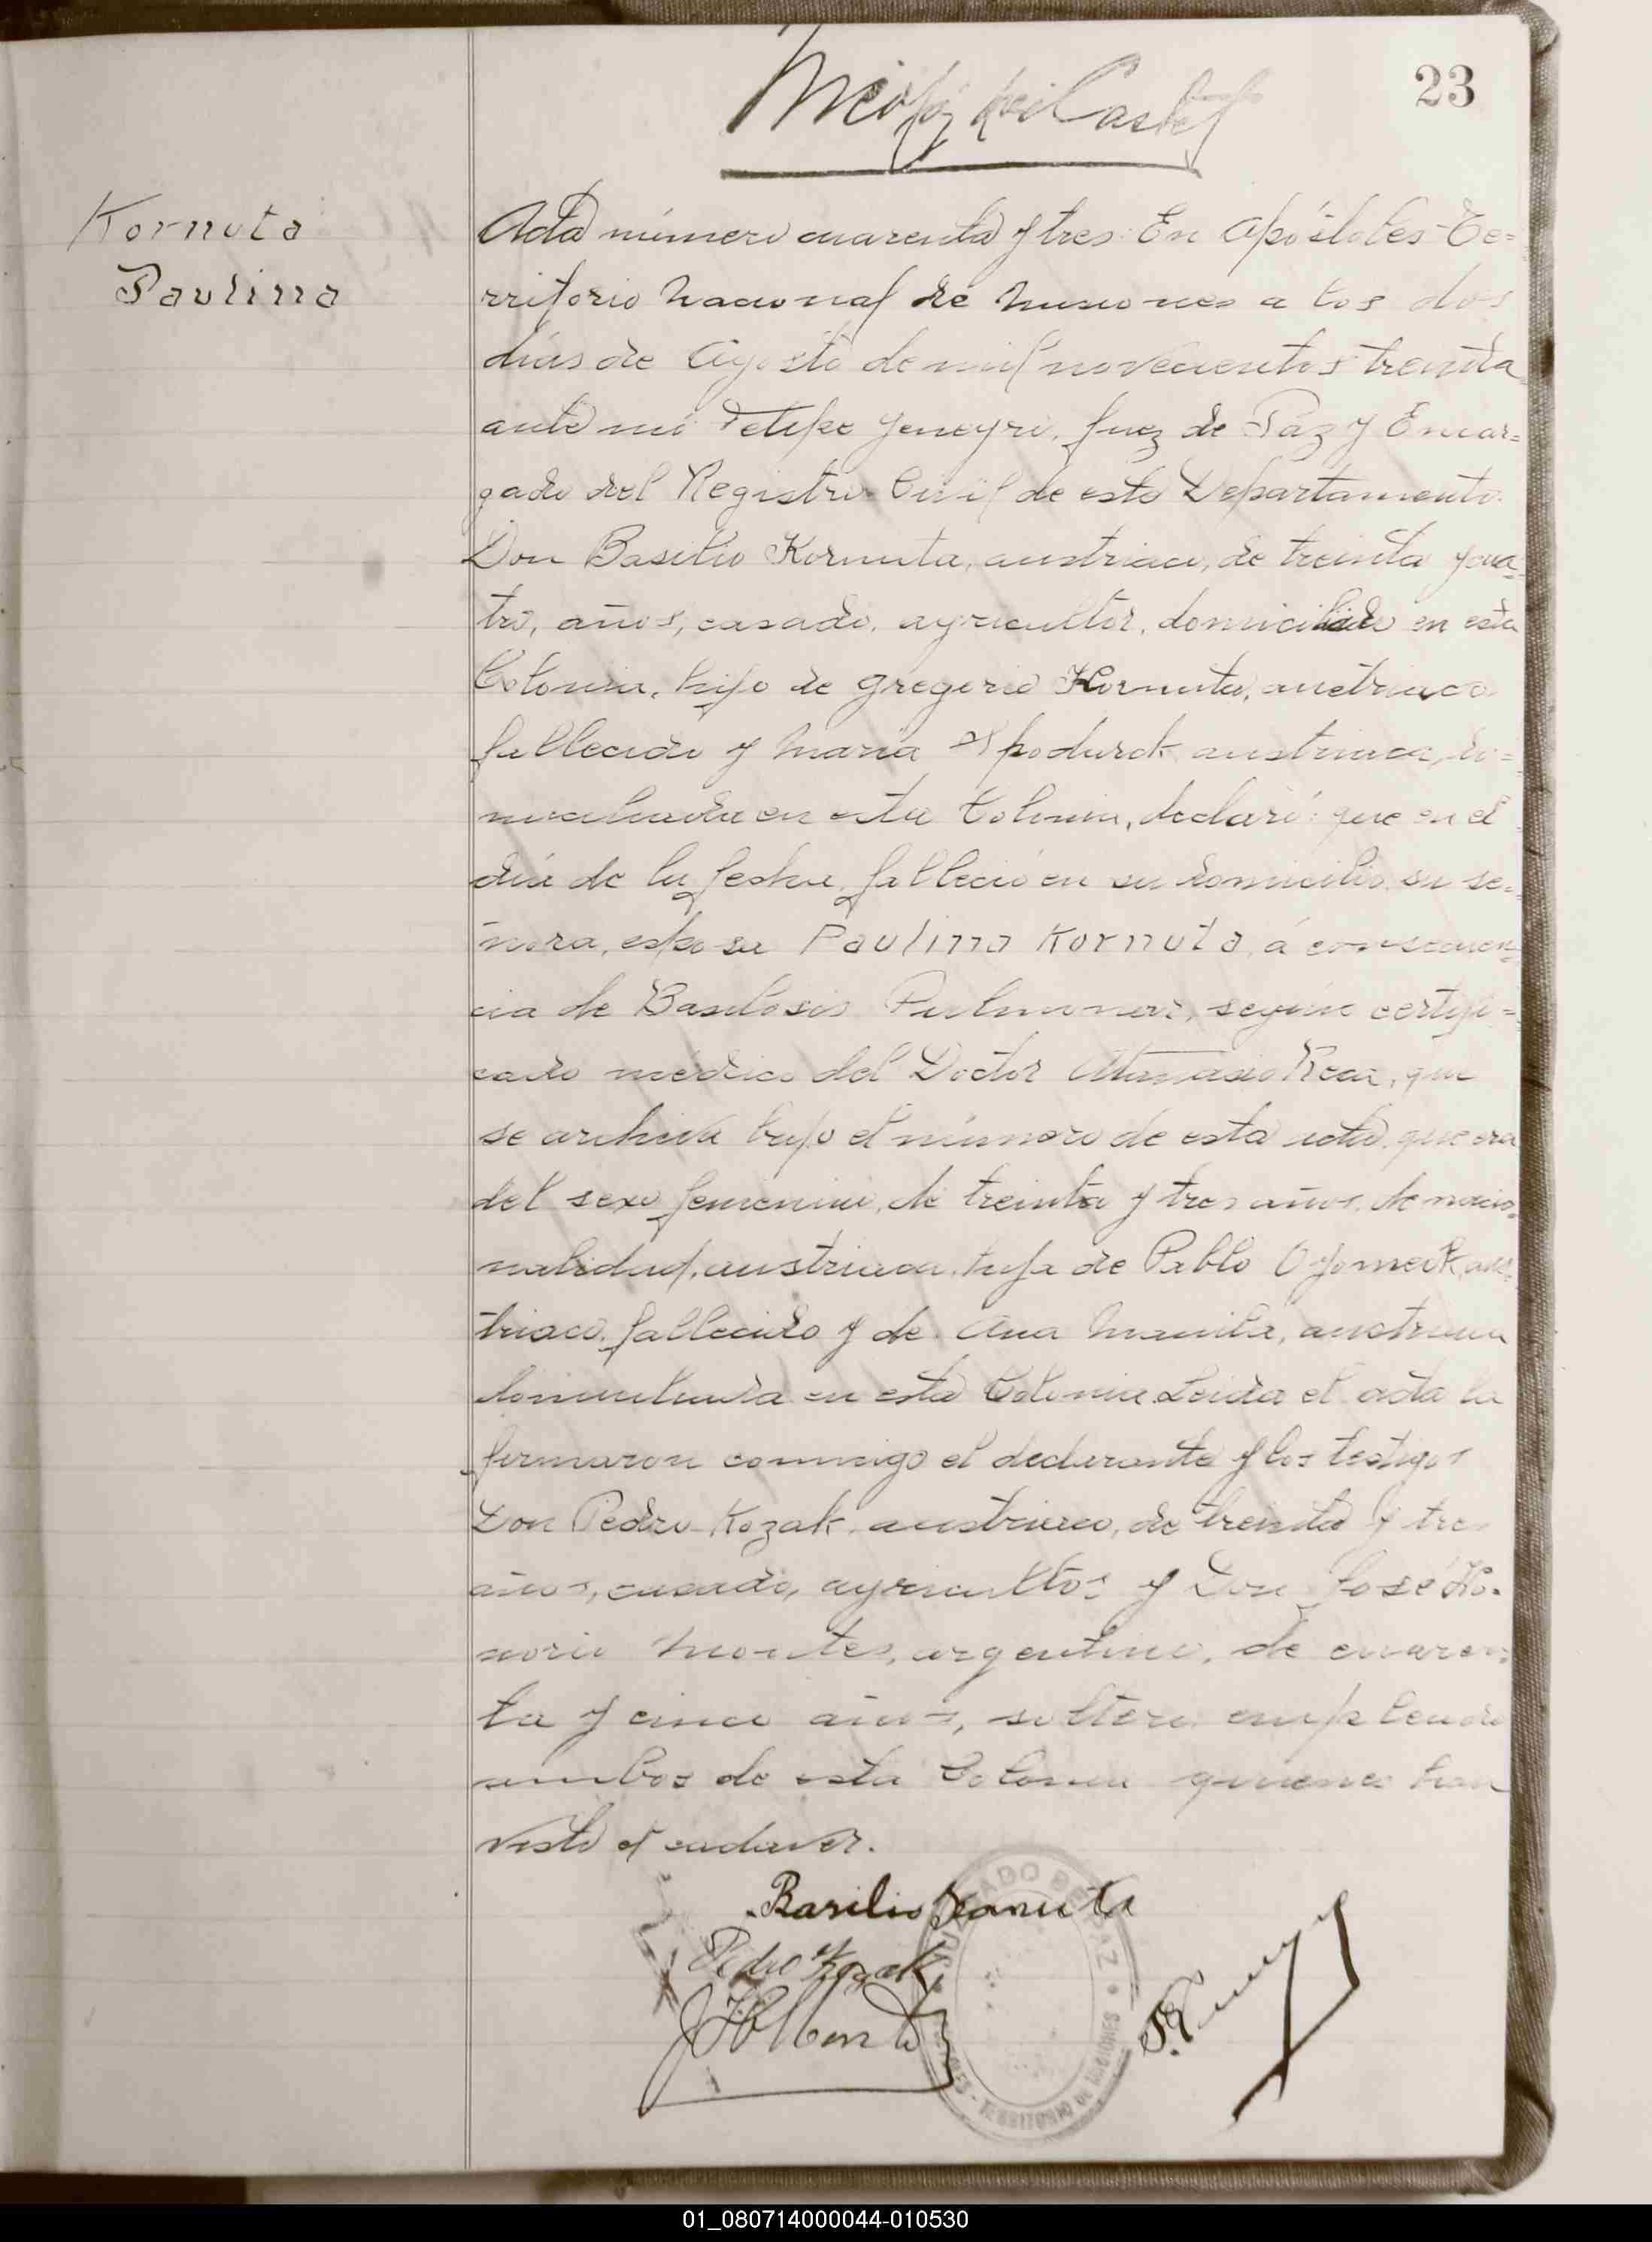 23
Kornuta
Paulina
Acta número cuarenta y tres: En Apóstoles-Te=
rritorio Nacional de Misiones a los dos
días de Agosto de mil novecientos treinta
ante mi Felipe Jeneyro, Juez de Paz y Encar=
gado del Registro Civil de este Departamento.
Don Basilio Kornuta, austriaco, de treinta y cua-
tro, años, casado, agricultor, domiciliado en esta
Colonia, hijo de Gregorio Kornuta, austriaco
fallecido y Maria Spodurek austriaca, do=
miciliada en esta Colonia, declaró: que en el
día de la fecha, falleció en su domicilio su se=
ñora, esposa Paulina Kornuta, á consecuen=
cia de Basilosis Pulmonar, según certifi=
cado médico del Doctor Atanasio Rear, que
se archiva bajo el número de esta acta, que era
del sexo femenino, de treinta y tres años, de nacio=
nalidad, austriaca, hija de Pablo Ojomeck, aus=
triaco, fallecido y de Ana Manila, austriaca
domiciliada en esta Colonia. Leida el acta la
firmaron conmigo el declarante y los testigos
Don Pedro Kozak, austriaco, de treinta y tres
años, casado, agricultor y Don José Ho=
norio Montes, argentino, de cuaren=
ta y cinco años, soltero empleado
ambos de esta Colonia quienes han
visto el cadaver.
Basilio Kornuta
Pedro Kozak
JHMontes
JUZGADO DE PAZ
TERRITORIO DE MISIONES
01_080714000044-010530